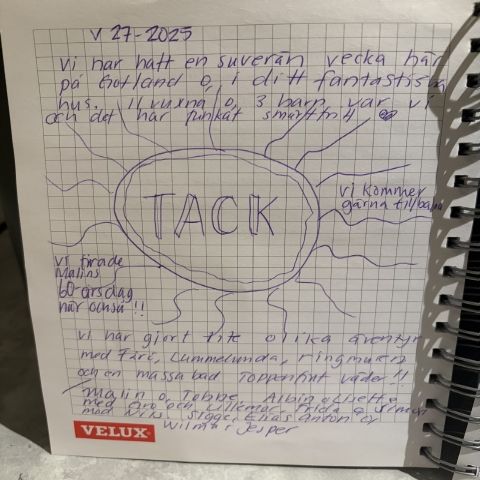 v 27-2025
Vi har haft en suverän vecka här
på Gotland o, i ditt fantastiska
hus. 11 vuxna o, 3 barn var vi
och det har funkat smärtfritt
TACK
Vi kommer
gärna tillbaka
Vi firade
Malins
60-årsdag
här också !!
Vi har gjort lite olika äventyr
med Fårö, Lummelunda, ringmuren
och en massa bad Toppenfint väder !!
Malin o, Tobbe Albin o
med och Lillemor, Frida o Simon
med Sigge, Elias Anton o,
Wilma Jesper
VELUX